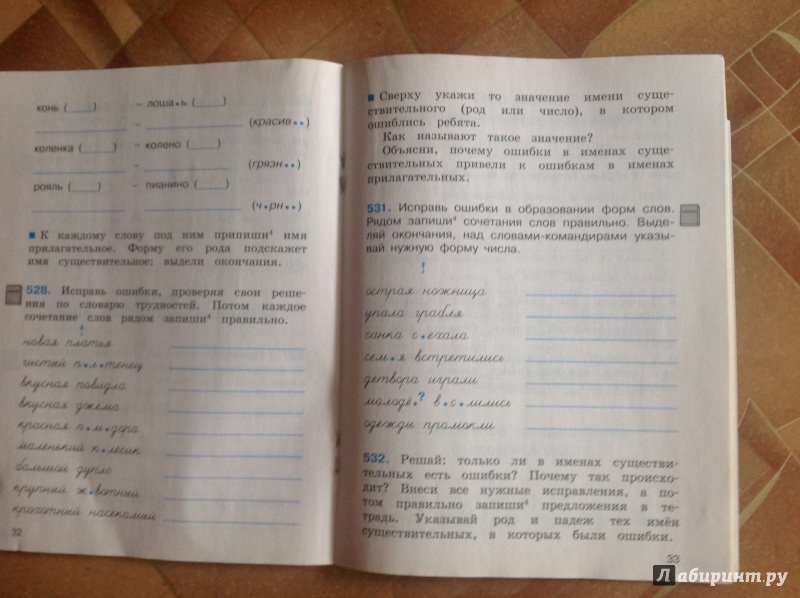 конь (___) – лоша•ь (___)
– (красив••)
коленка (___) – колено (___)
– (грязн••)
рояль (___) – пианино (___)
– (ч•рн••)
■ К каждому слову под ним припиши⁴ имя
прилагательное. Форму его рода подскажет
имя существительное; выдели окончания.
528. Исправь ошибки, проверяя свои реше-
ния по словарю трудностей. Потом каждое
сочетание слов рядом запиши⁴ правильно.
!
новая платья
чистый п•л•тенец
вкусная повидла
вкусная джема
красная п•м•дора
маленький к•лёсик
большой дупло
крупный ж•вотный
крохотный насекомый
32
■ Сверху укажи то значение имени суще-
ствительного (род или число), в котором
ошиблись ребята.
Как называют такое значение?
Объясни, почему ошибки в именах суще-
ствительных привели к ошибкам в именах
прилагательных.
531. Исправь ошибки в образовании форм слов.
Рядом запиши⁴ сочетания слов правильно. Выде-
ляй окончания, над словами-командирами указы-
вай нужную форму числа.
!
острая ножница
упала грабля
санка с•ехала
сем•я встретились
детвора играли
молодё•? в•с•лились
одежды промокли
532. Решай: только ли в именах существи-
тельных есть ошибки? Почему так происхо-
дит? Внеси все нужные исправления, а по-
том правильно запиши⁴ предложения в те-
традь. Указывай род и падеж тех имён
существительных, в которых были ошибки.
33
Лабиринт.ру